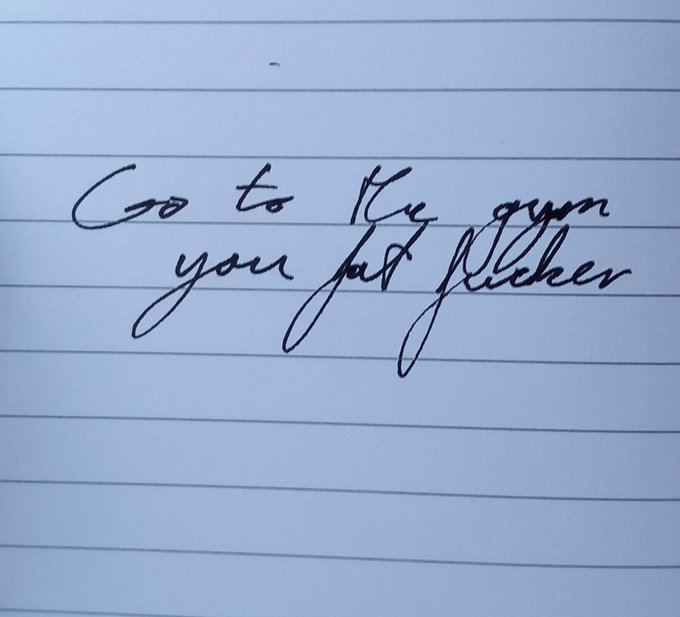 Go to the gym
you fat fucker